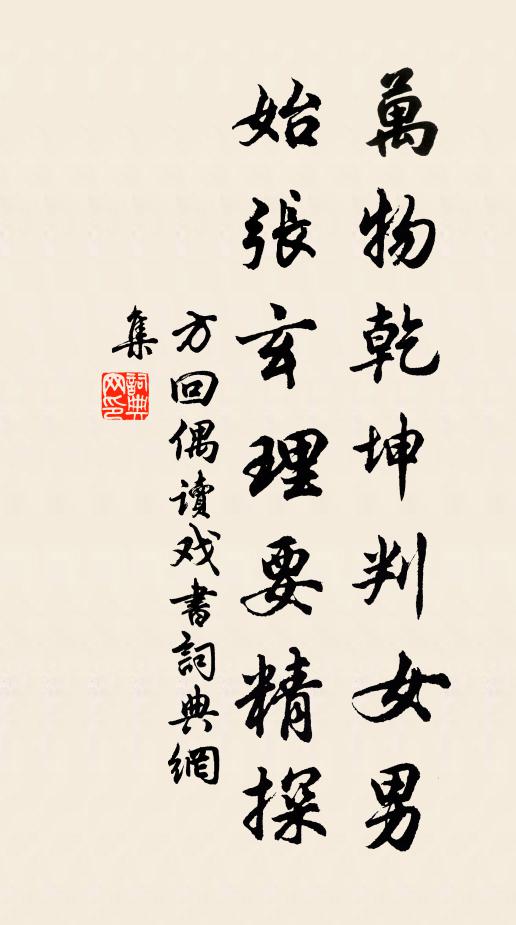 萬物乾坤判女男
始張玄理要精探
方回偶讀戏書詞典網
集
詞典网印